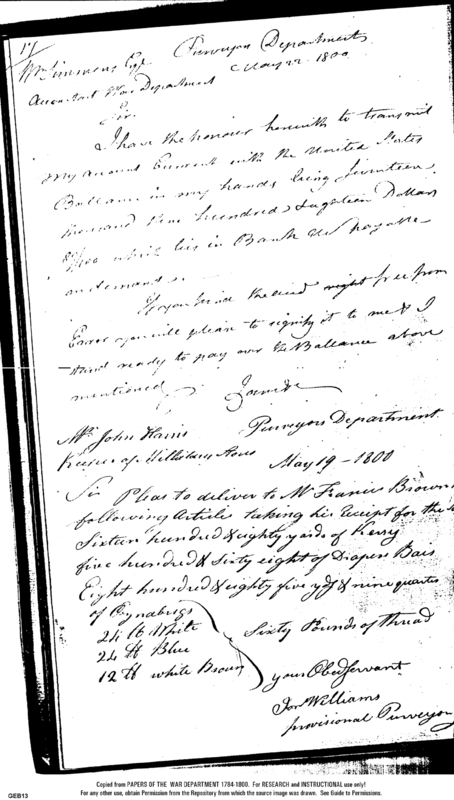 17
Wm Simmons Esqr Purveyors Department
May 22 1800
Accountant War Department
Sir
I have the honour herewith to transmit
my account Current with the United States
Ballance in my hands being Seventeen
thousand Nine hundred & Eighteen Dollars
/100 which lies in Bank US payable
on demand.
If you find the and right free from
Error you will please to signify it to me & I
stand ready to pay over the Ballance above
mentioned
I am Sir
Mr John Harris Purveyors Department
Keeper of Millitary Stores
May 19 - 1800
Sir Pleas to deliver to Mr Francis Brown
following Articles taking his receipt for the
Sixteen hundred & eighty yards of Kersey
five hundred & Sixty eight of Diapers Bais
Eight hundred & eighty five yds & nine quarter
of Oznabrigs
24 lb White
24 lb Blue
12 lb white Brown
Sixty Pounds of thread
your Obed Servant
Jon Williams
provisional Purveyor
Copied from PAPERS OF THE WAR DEPARTMENT 1784-1800. For RESEARCH and INSTRUCTIONAL use only!
For any other use, obtain Permission from the Repository from which the source image was drawn. See Guide to Permissions.
GEB13